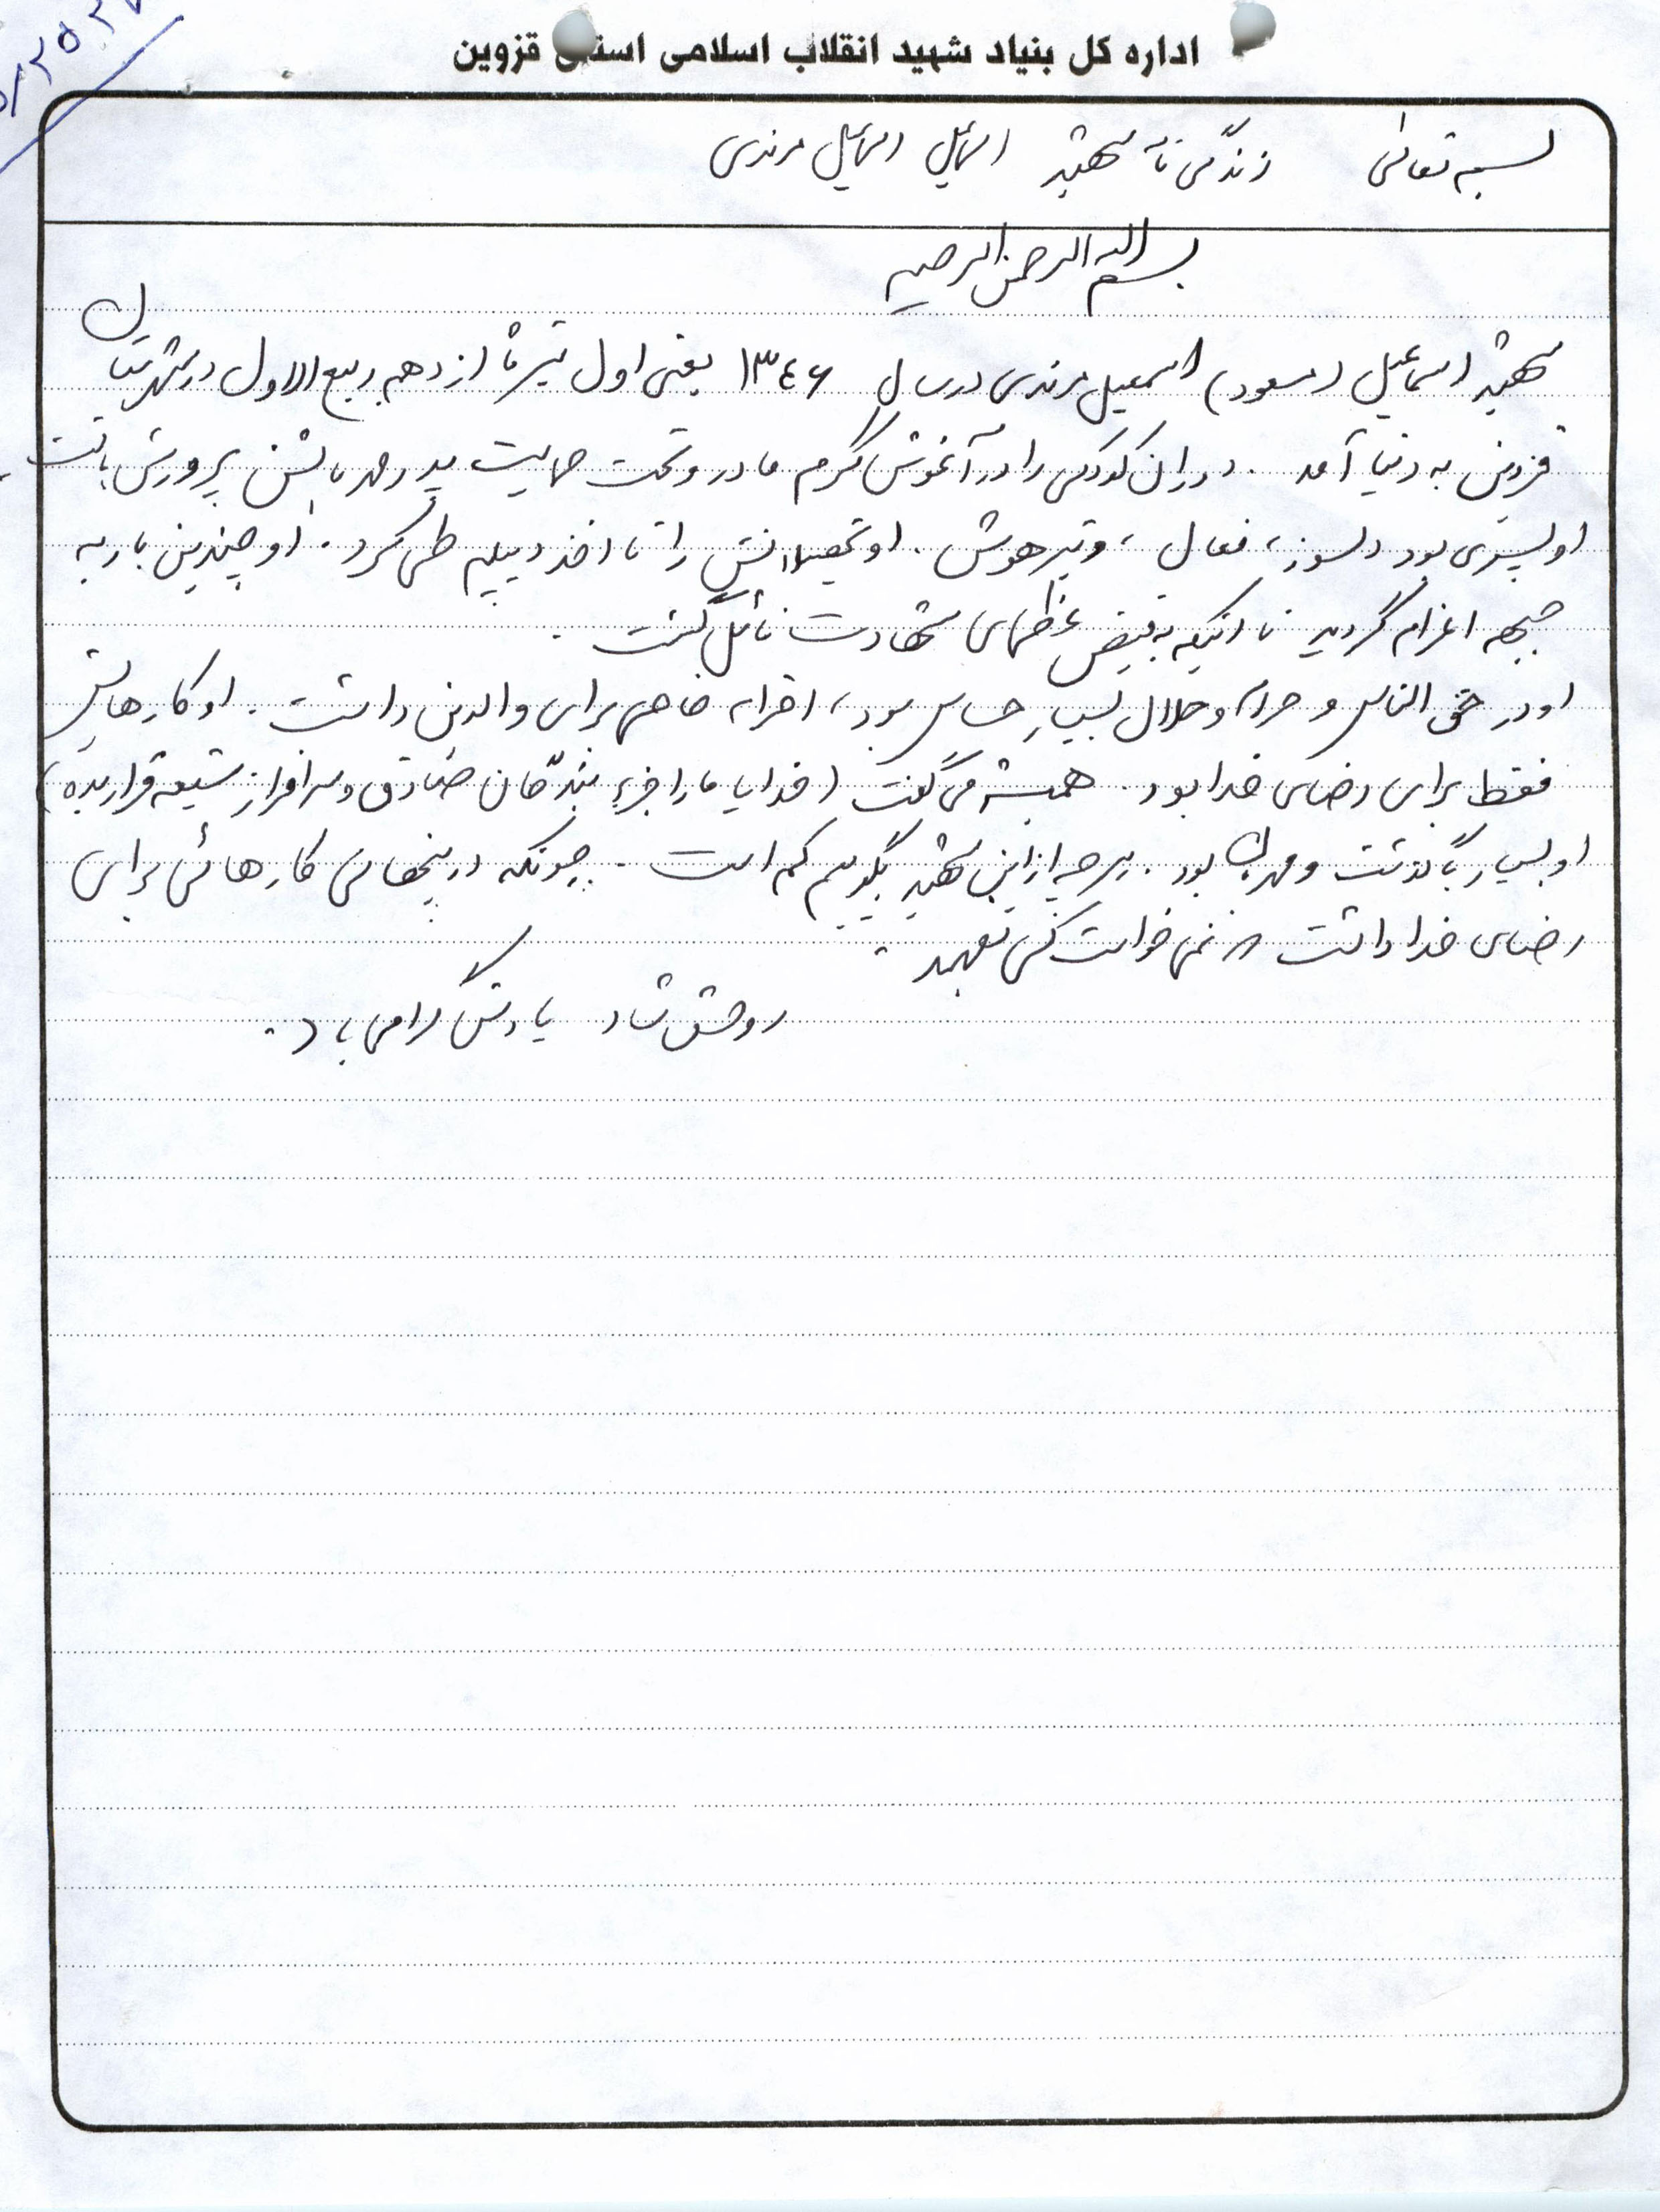 اداره کل بنیاد شهید انقلاب اسلامی استان قزوین
بسمه تعالی زندگی نامه شهید اسماعیل اسماعیل مرندی
بسم الله الرحمن الرحیم
شهید اسماعیل (مسعود) اسمعیل مرندی در سال ۱۳٤۶ یعنی اول تیرماه از دهم ربیع الاول در شهرستان
قزوین به دنیا آمد. دوران کودکی را در آغوش گرم مادر و تحت حمایت پدر مهربانش پرورش یافت.
او پسری بود دلسوز، فعال، و تیزهوش. او تحصیلاتش را تا اخذ دیپلم طی کرد. او چندین بار به
جبهه اعزام گردید تا اینکه به فیض عظمای شهادت نائل گشت.
او در حق الناس و حرام و حلال بسیار حساس بود، احترام خاصی برای والدین داشت. او کارهایش
فقط برای رضای خدا بود. همیشه می گفت (خدایا ما را جزء بندگان صادق و سرافراز شیعه قرار بده)
او بسیار باگذشت و مهربان بود. هرچه از این شهید بگویم کم است. چونکه در پنهانی کارهائی برای
رضای خدا داشت که نمی خواست کسی بفهمد.
روحش شاد یادش گرامی باد.